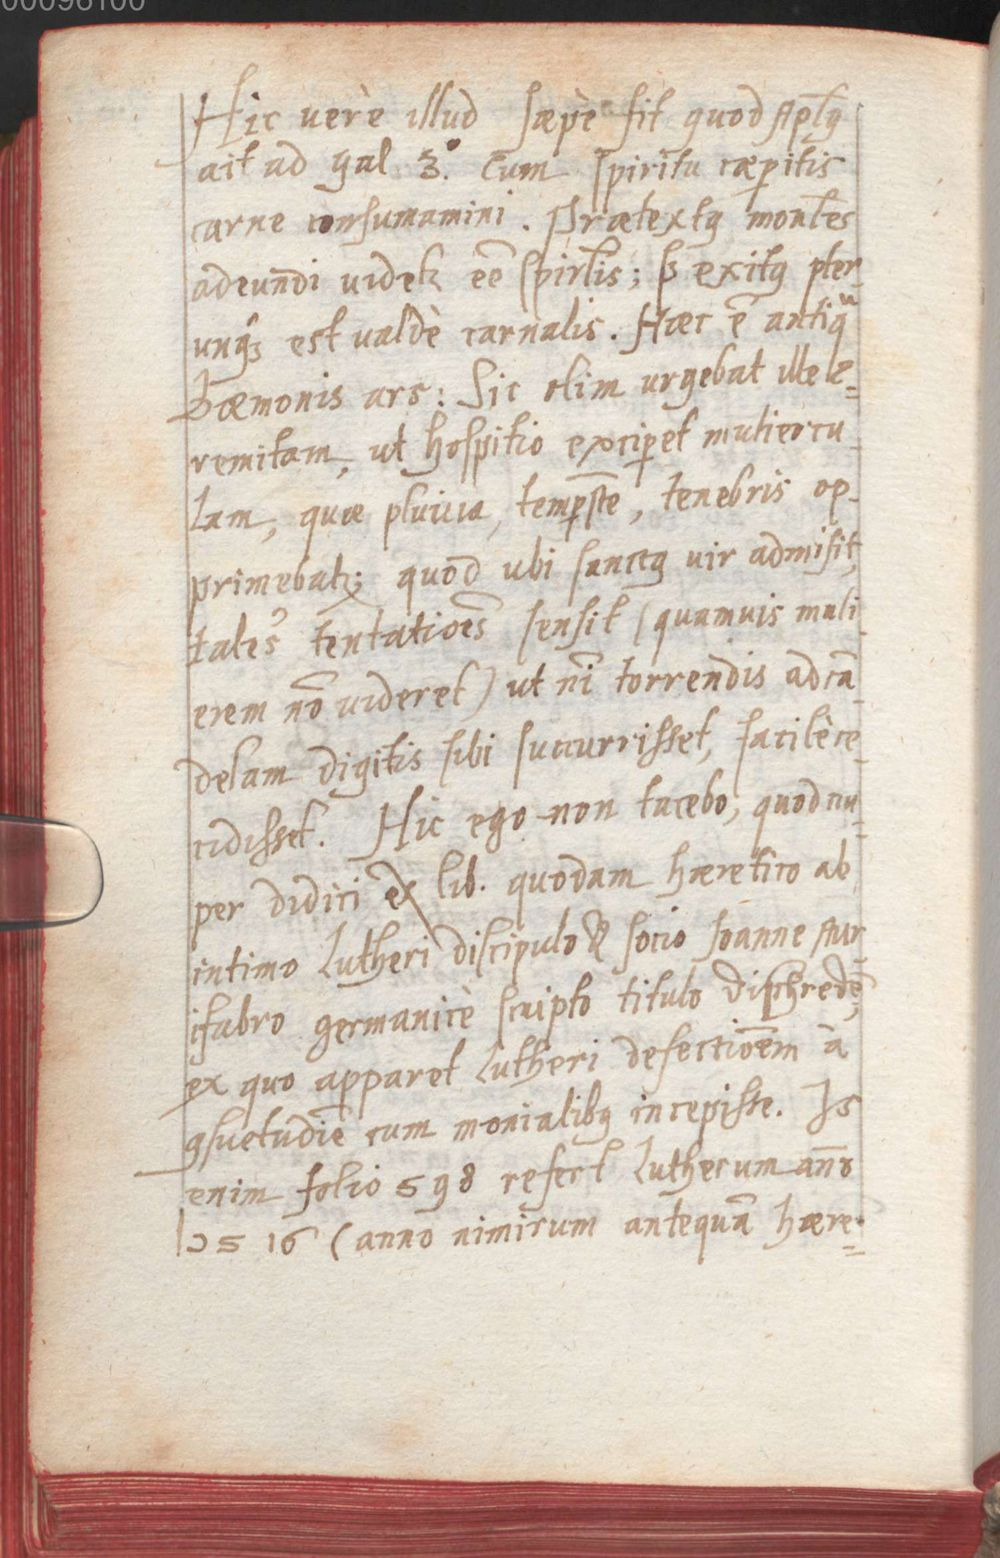 00096100
Hic verè illud sæpè fit quod Aplꝰ
ait ad gal 3.° Cum spiritu cæpitis
carne consumamini. Prætextꝰ montes
adeundi uidetꝛ eē spirlis; sꝫ exitꝰ pler-
unqꝫ est ualdè carnalis. Hæc ē antiqᵘ
Dæmonis ars: Sic olim urgebat ille e=
remitam, ut hospitio exciperet muliercu-
lam, quæ pluuia, tempeste, tenebris op-
primebatꝛ; quod ubi sanctꝰ uir admisit,
tales tentatioēs sensit (quamuis muli-
erem nō uideret) ut ni torrendis ad cā-
delam digitis sibi succurrisset, facilè ce-
cidisset. Hic ego non tacebo, quod nu=
per didici ex lib. quodam hæretico ab
intimo Lutheri discipulo & socio Joanne Aur-
ifabro germanicè scripto titulo Dischredē,
ex quo apparet Lutheri defectioēm à
ꝯsuetudiē cum monialibꝰ incepisse. Is
enim folio 598 refert Lutherum anno
1516 (anno nimirum antequā hære=